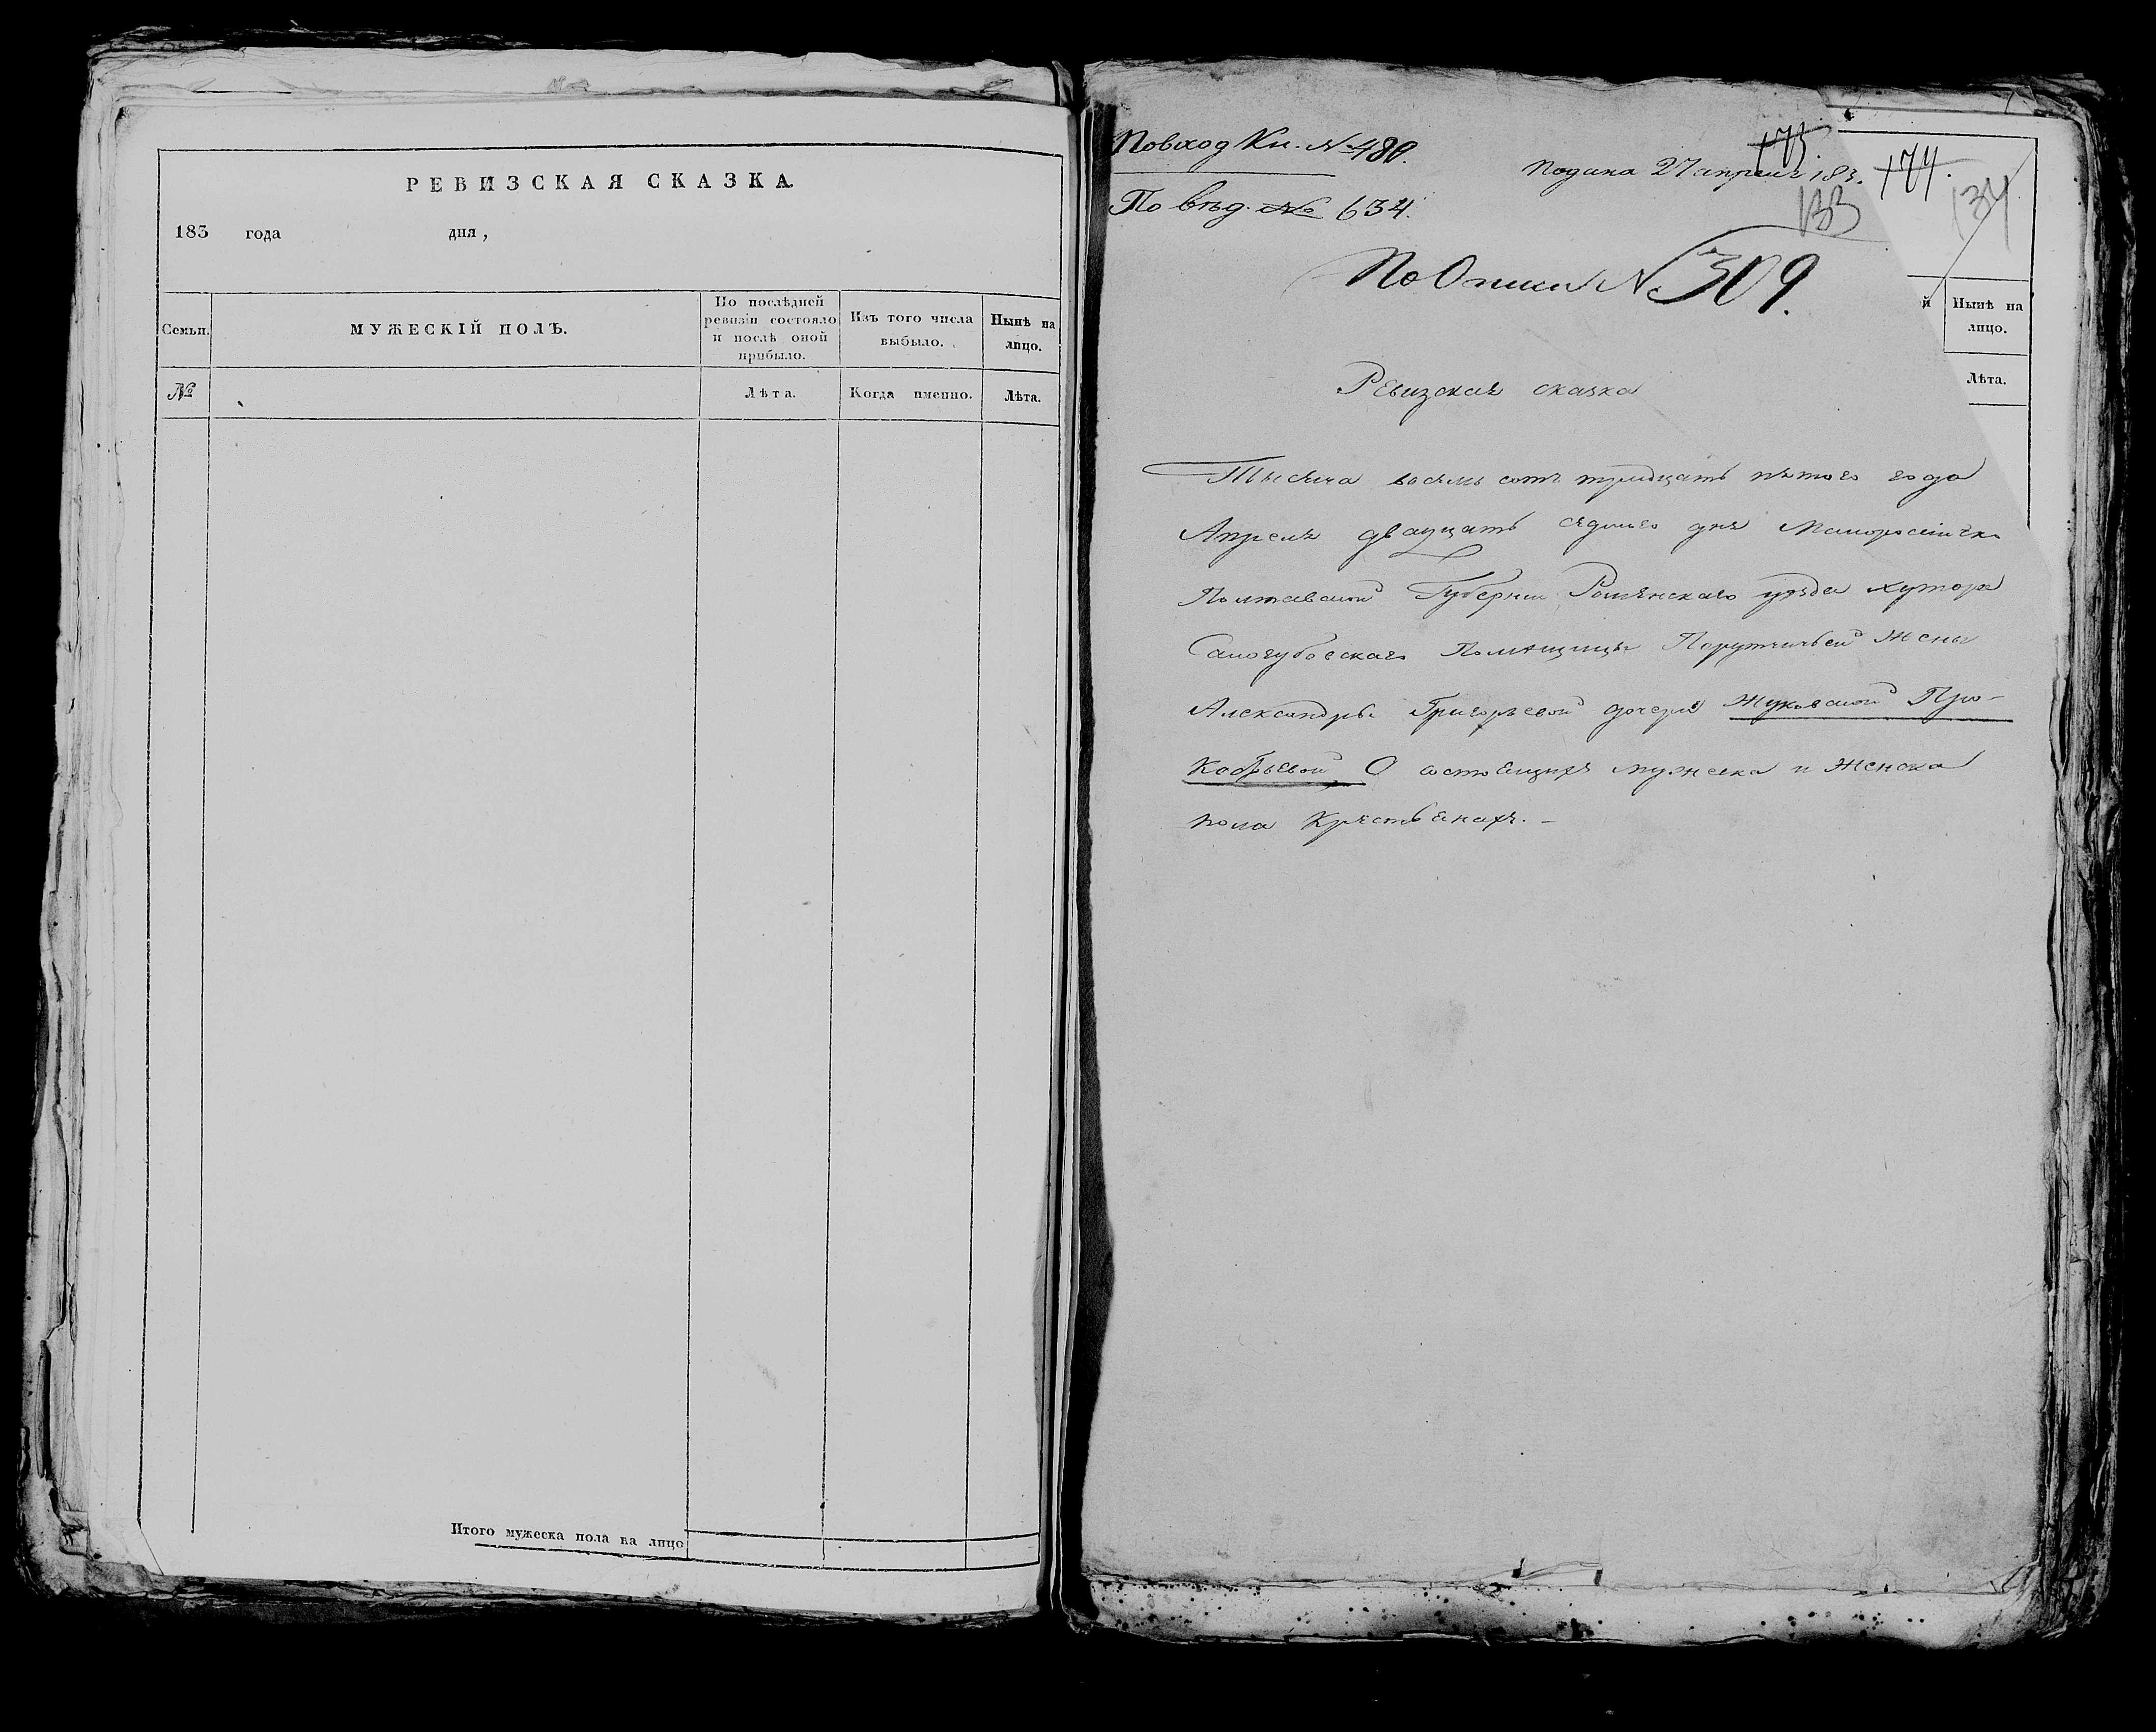 РЕВИЗСКАЯ СКАЗКА.
183 года дня,
Семьи.
МУЖЕСКІЙ ПОЛЪ.
По послѣдней ревизіи состояло и послѣ оной прибыло.
Изъ того числа выбыло.
Нынѣ на лицо.
№
Лѣта.
Когда именно.
Лѣта.
Итого мужеска пола на лицо
По вход Кн. № 480.
По вѣд. № 634.
173.
Подана 27 апреля 183
133
По Описи № 309.
Ревизская сказка
Тысяча восемь сотъ тридцать пятого года
Апреля двадцать седмого дня Малоросійско
Полтавской Губерніи Роменскаго уѣзда хутора
Самогубовскаго Помѣщицы Порутчичьей Жены
Александры Григорьевой дочери Жуковской Про-
кофьевой О состоящихъ мужеска и Женска
пола Крестьянахъ. –
174.
134
й
Нынѣ на лицо.
Лѣта.